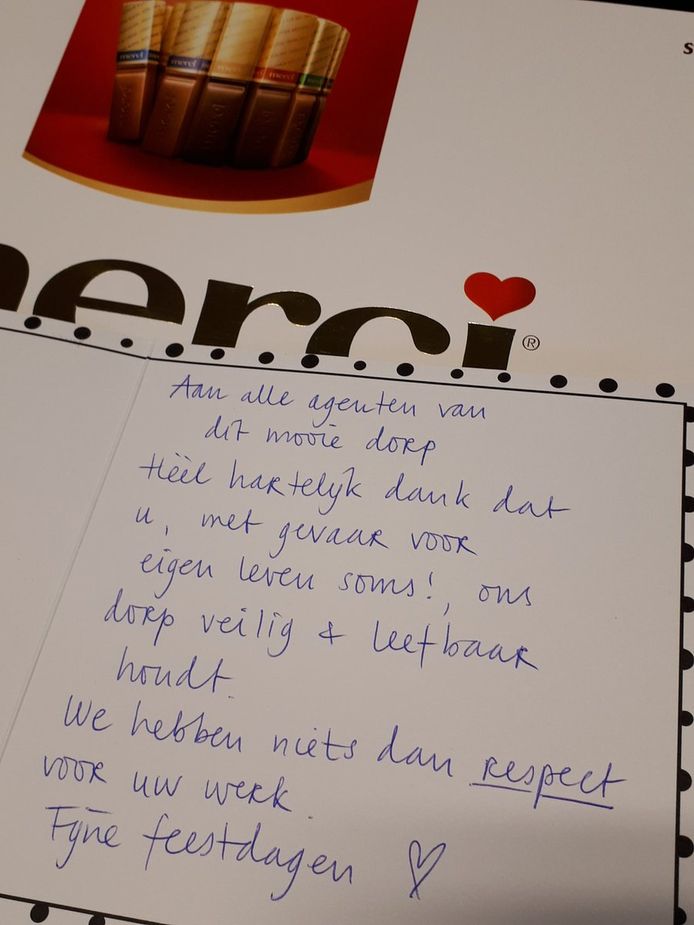 merci merci merci
s
merci®
Aan alle agenten van
dit mooie dorp
Héél hartelijk dank dat
u, met gevaar voor
eigen leven soms!, ons
dorp veilig & leefbaar
houdt.
We hebben niets dan respect
voor uw werk.
Fijne feestdagen